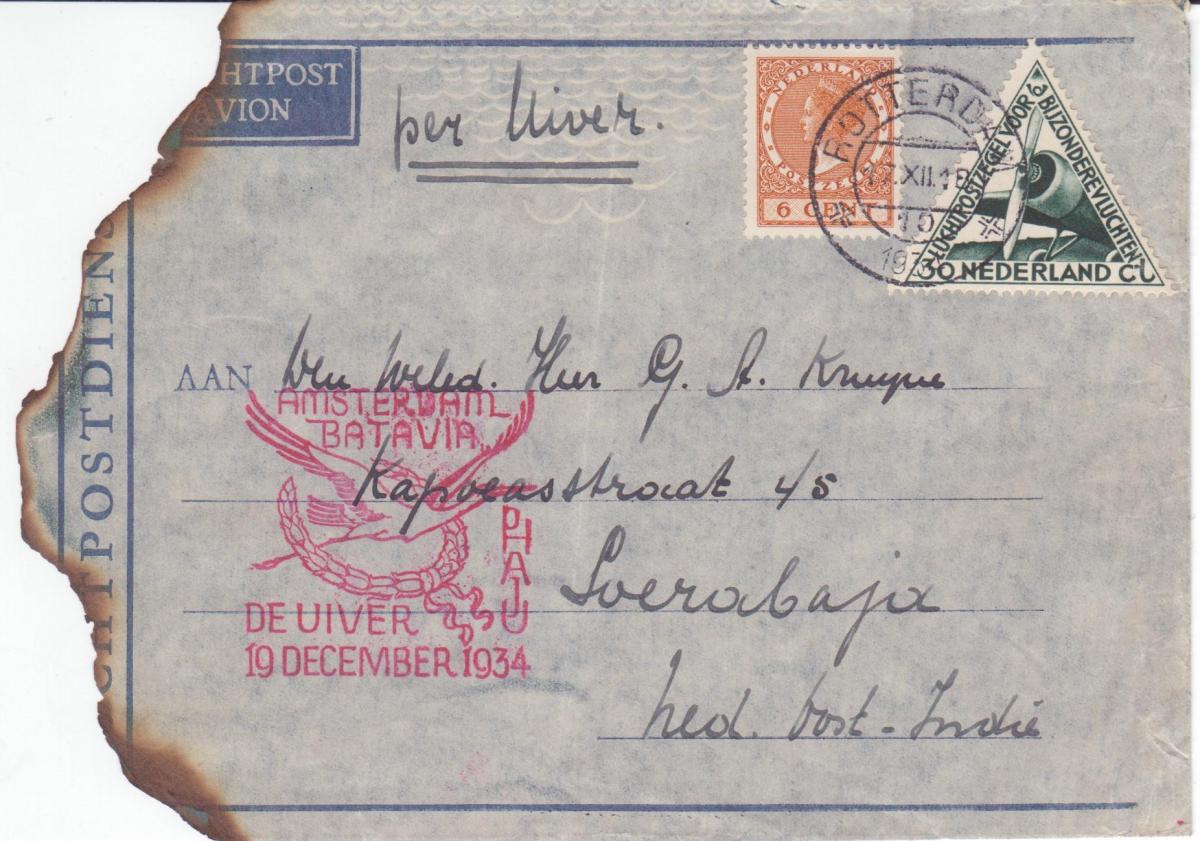 HTPOST
AVION
per Uiver.
NEDERLAND
POSTZEGEL
6 CENT
ROTTERDAM
XII.18
10
LUCHTPOSTZEGEL VOOR
BIJZONDERE VLUCHTEN
30 NEDERLAND CT
CHTPOSTDIENS
AAN Den Weled. Heer G. A. Kruyne
Kapoeasstraat 45
Soerabaja
Ned. Oost-Indië
AMSTERDAM
BATAVIA
PHAJU
DE UIVER
19 DECEMBER 1934